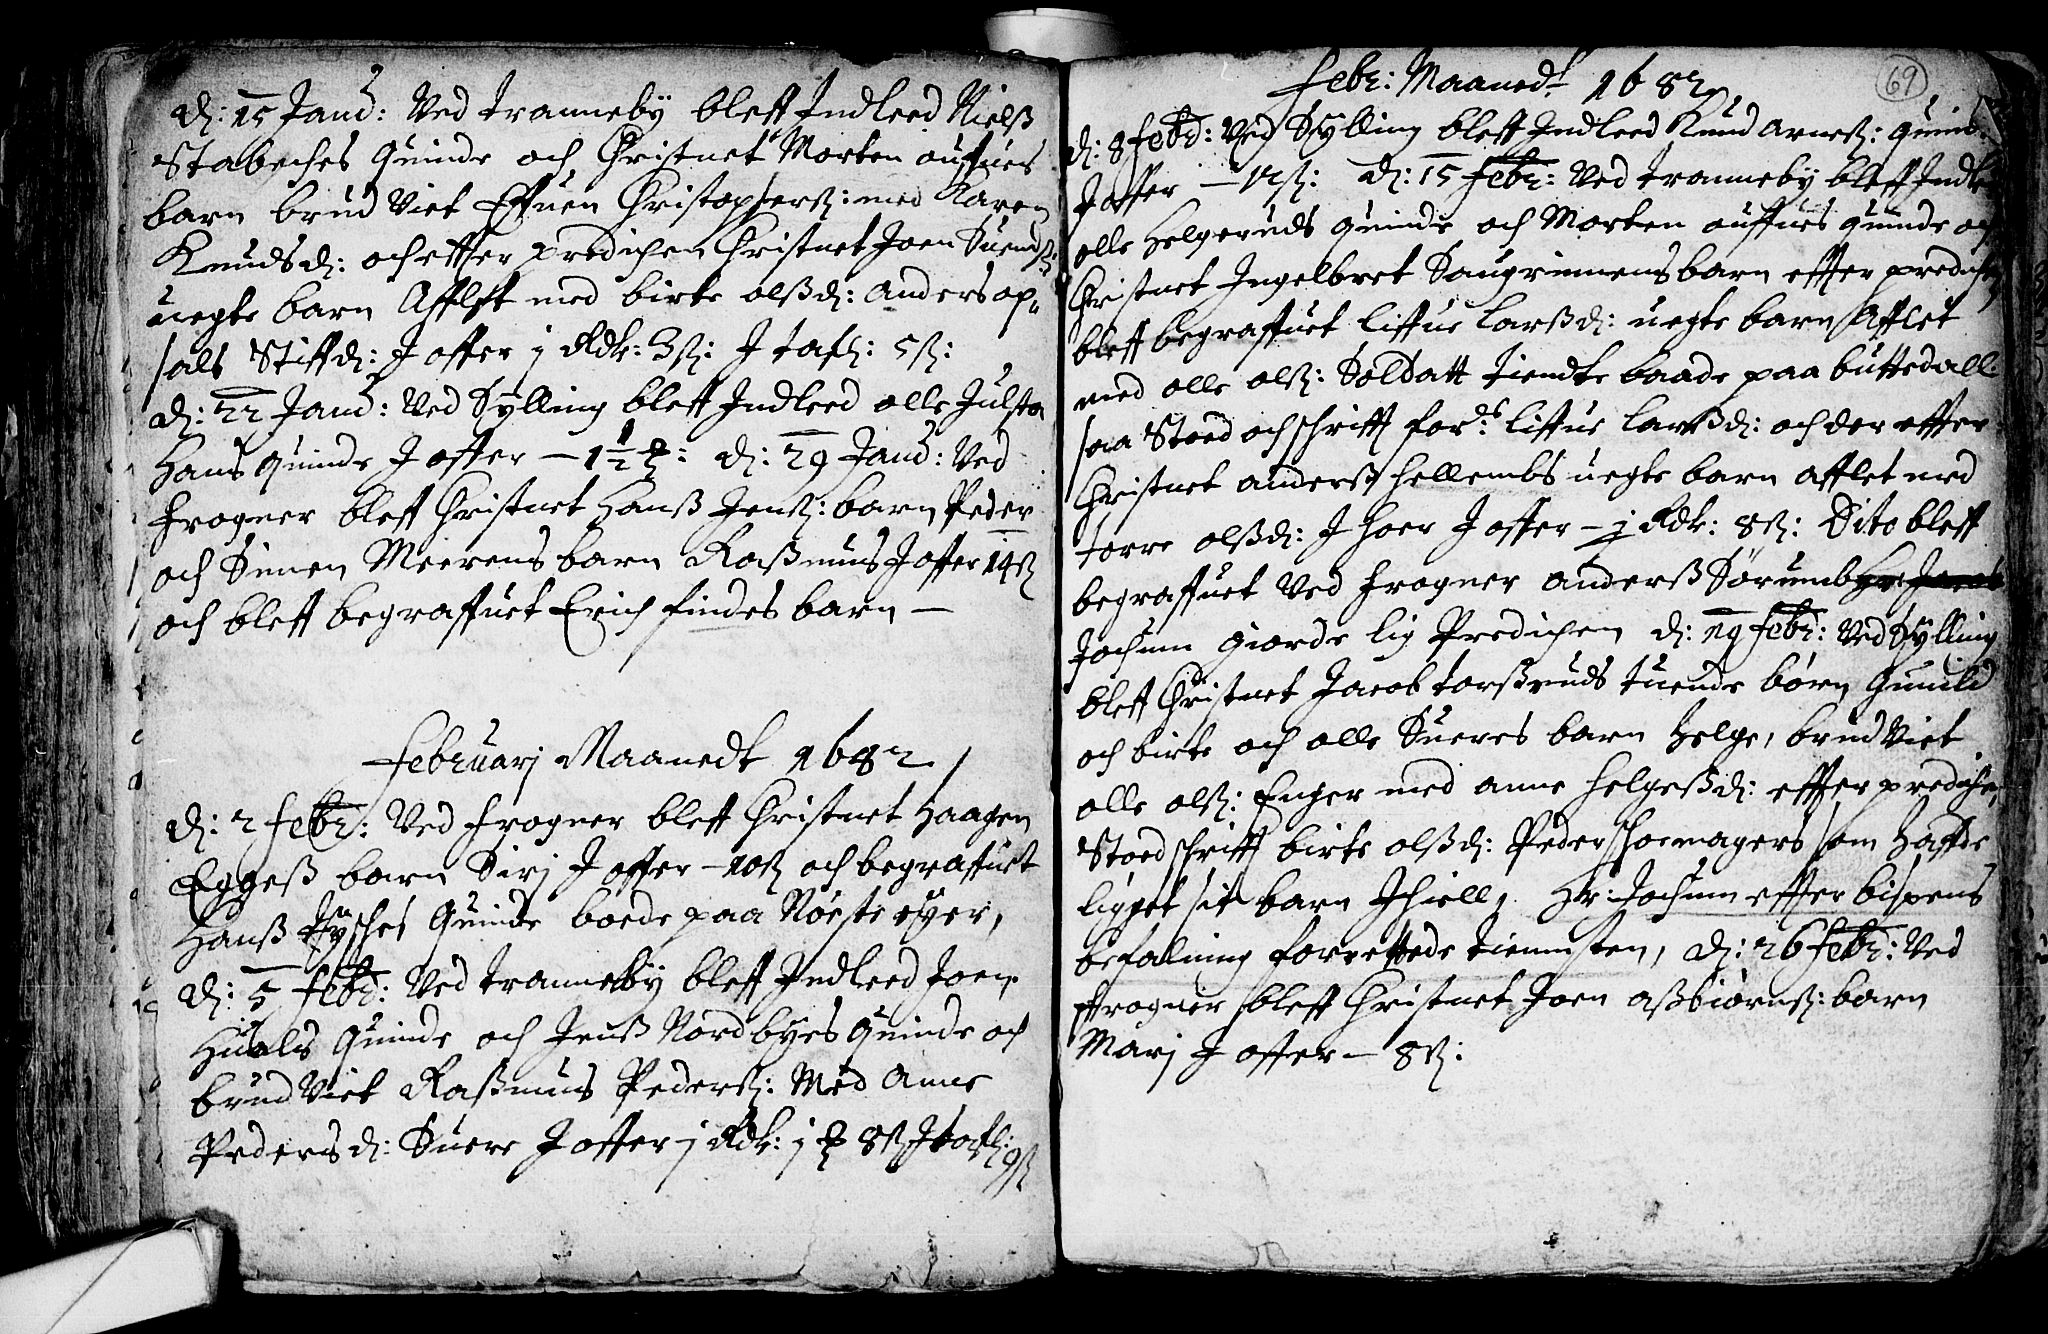 d: 15 Janu: Ved Tranneby bleff Indleed Nielß
Stabeches Quinde och Christnet Morten auffues
barn brud Viet Effuen Christophersß: med Karen
Knudsd: och effter predichen Christnet Joen Suends:
uegte barn Afflet med birte olßd: anders op„
sals Stiffd: J offer j Rdr: 3ß: J tafl: 5ß:
d: 22 Janu: Ved Sylling bleff Indleed olle Julsta
Hans quinde J offer — 1½ : d: 29 Janu: Ved
frogner bleff Christnet Hanß Jenß: barn Peder
och Simen Meerens barn Raßmus J offer 14ß
och bleff begraffuet Erich findes barn —
Februarj Maanedt 1682
d: 2 febr: Ved frogner bleff Christnet Haagen
Eggeß barn Sirj J offer — 10ß och begraffuet
Hanß Quinde boede paa Nøeste øyer,
d: 5 febr: Ved Tranneby bleff Indleed Joen
Huals Quinde och Jenß Nordbyes Quinde och
brud Viet Raßmus Pederß: Med Anne
Pedersd: Suere J offer j Rdr: j 8ß J tafl:
9ß
69
Febr: Maanedt 1682
d: 8 febr: Ved Sylling bleff Indleed Knud Arneß: quind
J offer — 12ß: d: 15 febr: Ved Tranneby bleff Indle
olle Helgeruds quinde och Morten auffues quinde och
Christnet Ingelbret Haugrinnens barn effter predichen
bleff begraffuet liffue larßd: uegte barn Afflet
med olle olß: Soldatt tiendte baade paa buttedall
saa Stoed och schrifft for: liffue larßd: och der effter
Christnet anderß hellembs uegte barn afflet med
torre olßd: J hoer J offer — j Rdr: 8ß: Dito bleff
begraffuet Ved frogner anderß Sørumb Hr: Jacob
Jochum giorde lig Predichen d: 19 febr: Ved Sylling
bleff Christnet Jacob torßruds tuende børn Gunild
och birte och olle Sueres barn Helge, brud Viet
olle olß: Enger med anne helgeßd: effter predichen
Stoed schrifft birte olßd: Peder schoemagers som haffde
ligget sit barn Jhiell, Hr: Jochum effter bispens
befalning forrettede tiennisten, d: 26 febr: Ved
ffrogner bleff Christnet Joen aßbiørnß: barn
Marj J offer — 8ß: